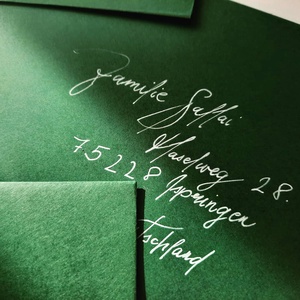 Familie Gallai
Haselweg 28.
75228 Ispringen
tschland